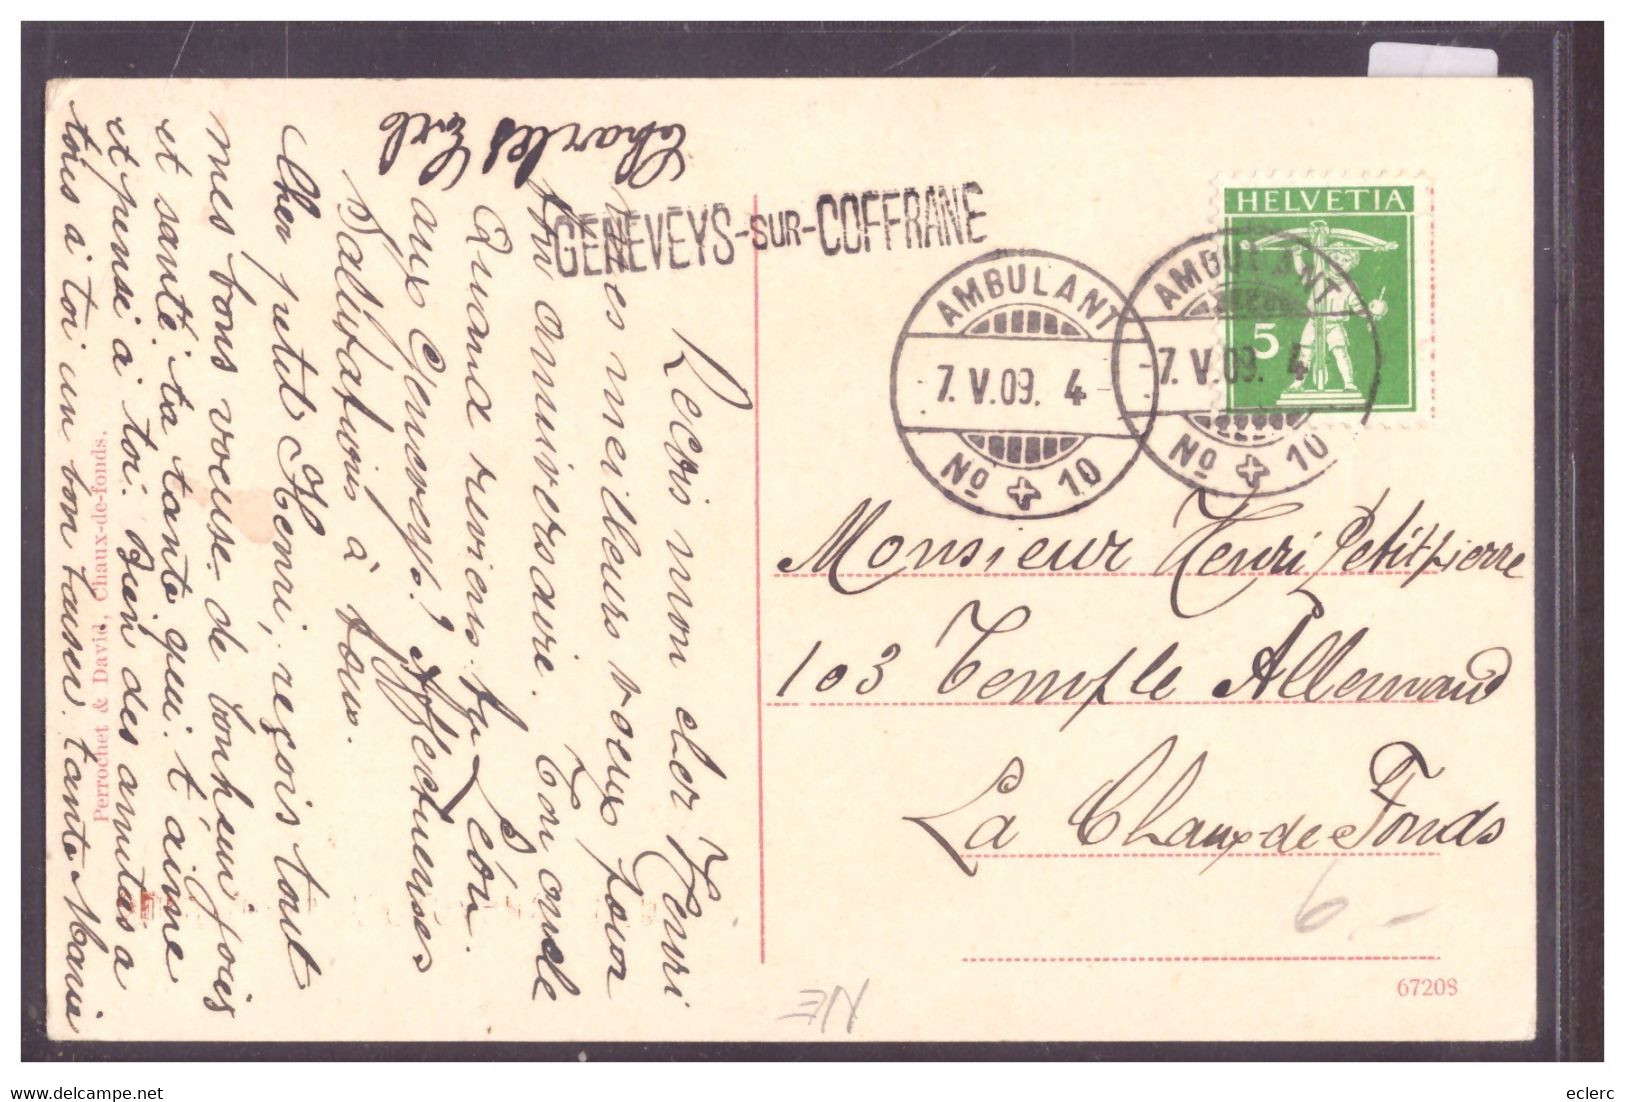 Charles Erb
Reçois mon cher Henri
mes meilleurs voeux pour
ton anniversaire. Ton oncle
Quand reviens-tu Léon.
aux Geneveys? Affectueuses
Salutations à tous.
Cher petit Henri, reçois tout
mes bons voeuse de bonheur, joies
et santé, ta tante qui t'aime
et pense à toi. Bien des amitas à
tous à toi un bon baiser. tante Marie
Perrochet & David, Chaux-de-fonds.
GENEVEYS-SUR-COFFRANE
AMBULANT
7. V. 09. 4
No 10
AMBULANT
7. V. 09. 4
No 10
HELVETIA
5
Monsieur Henri Petitpierre
103 Temple Allemand
La Chaux de Fonds
6.-
NE
67208
eclerc
www.delcampe.net